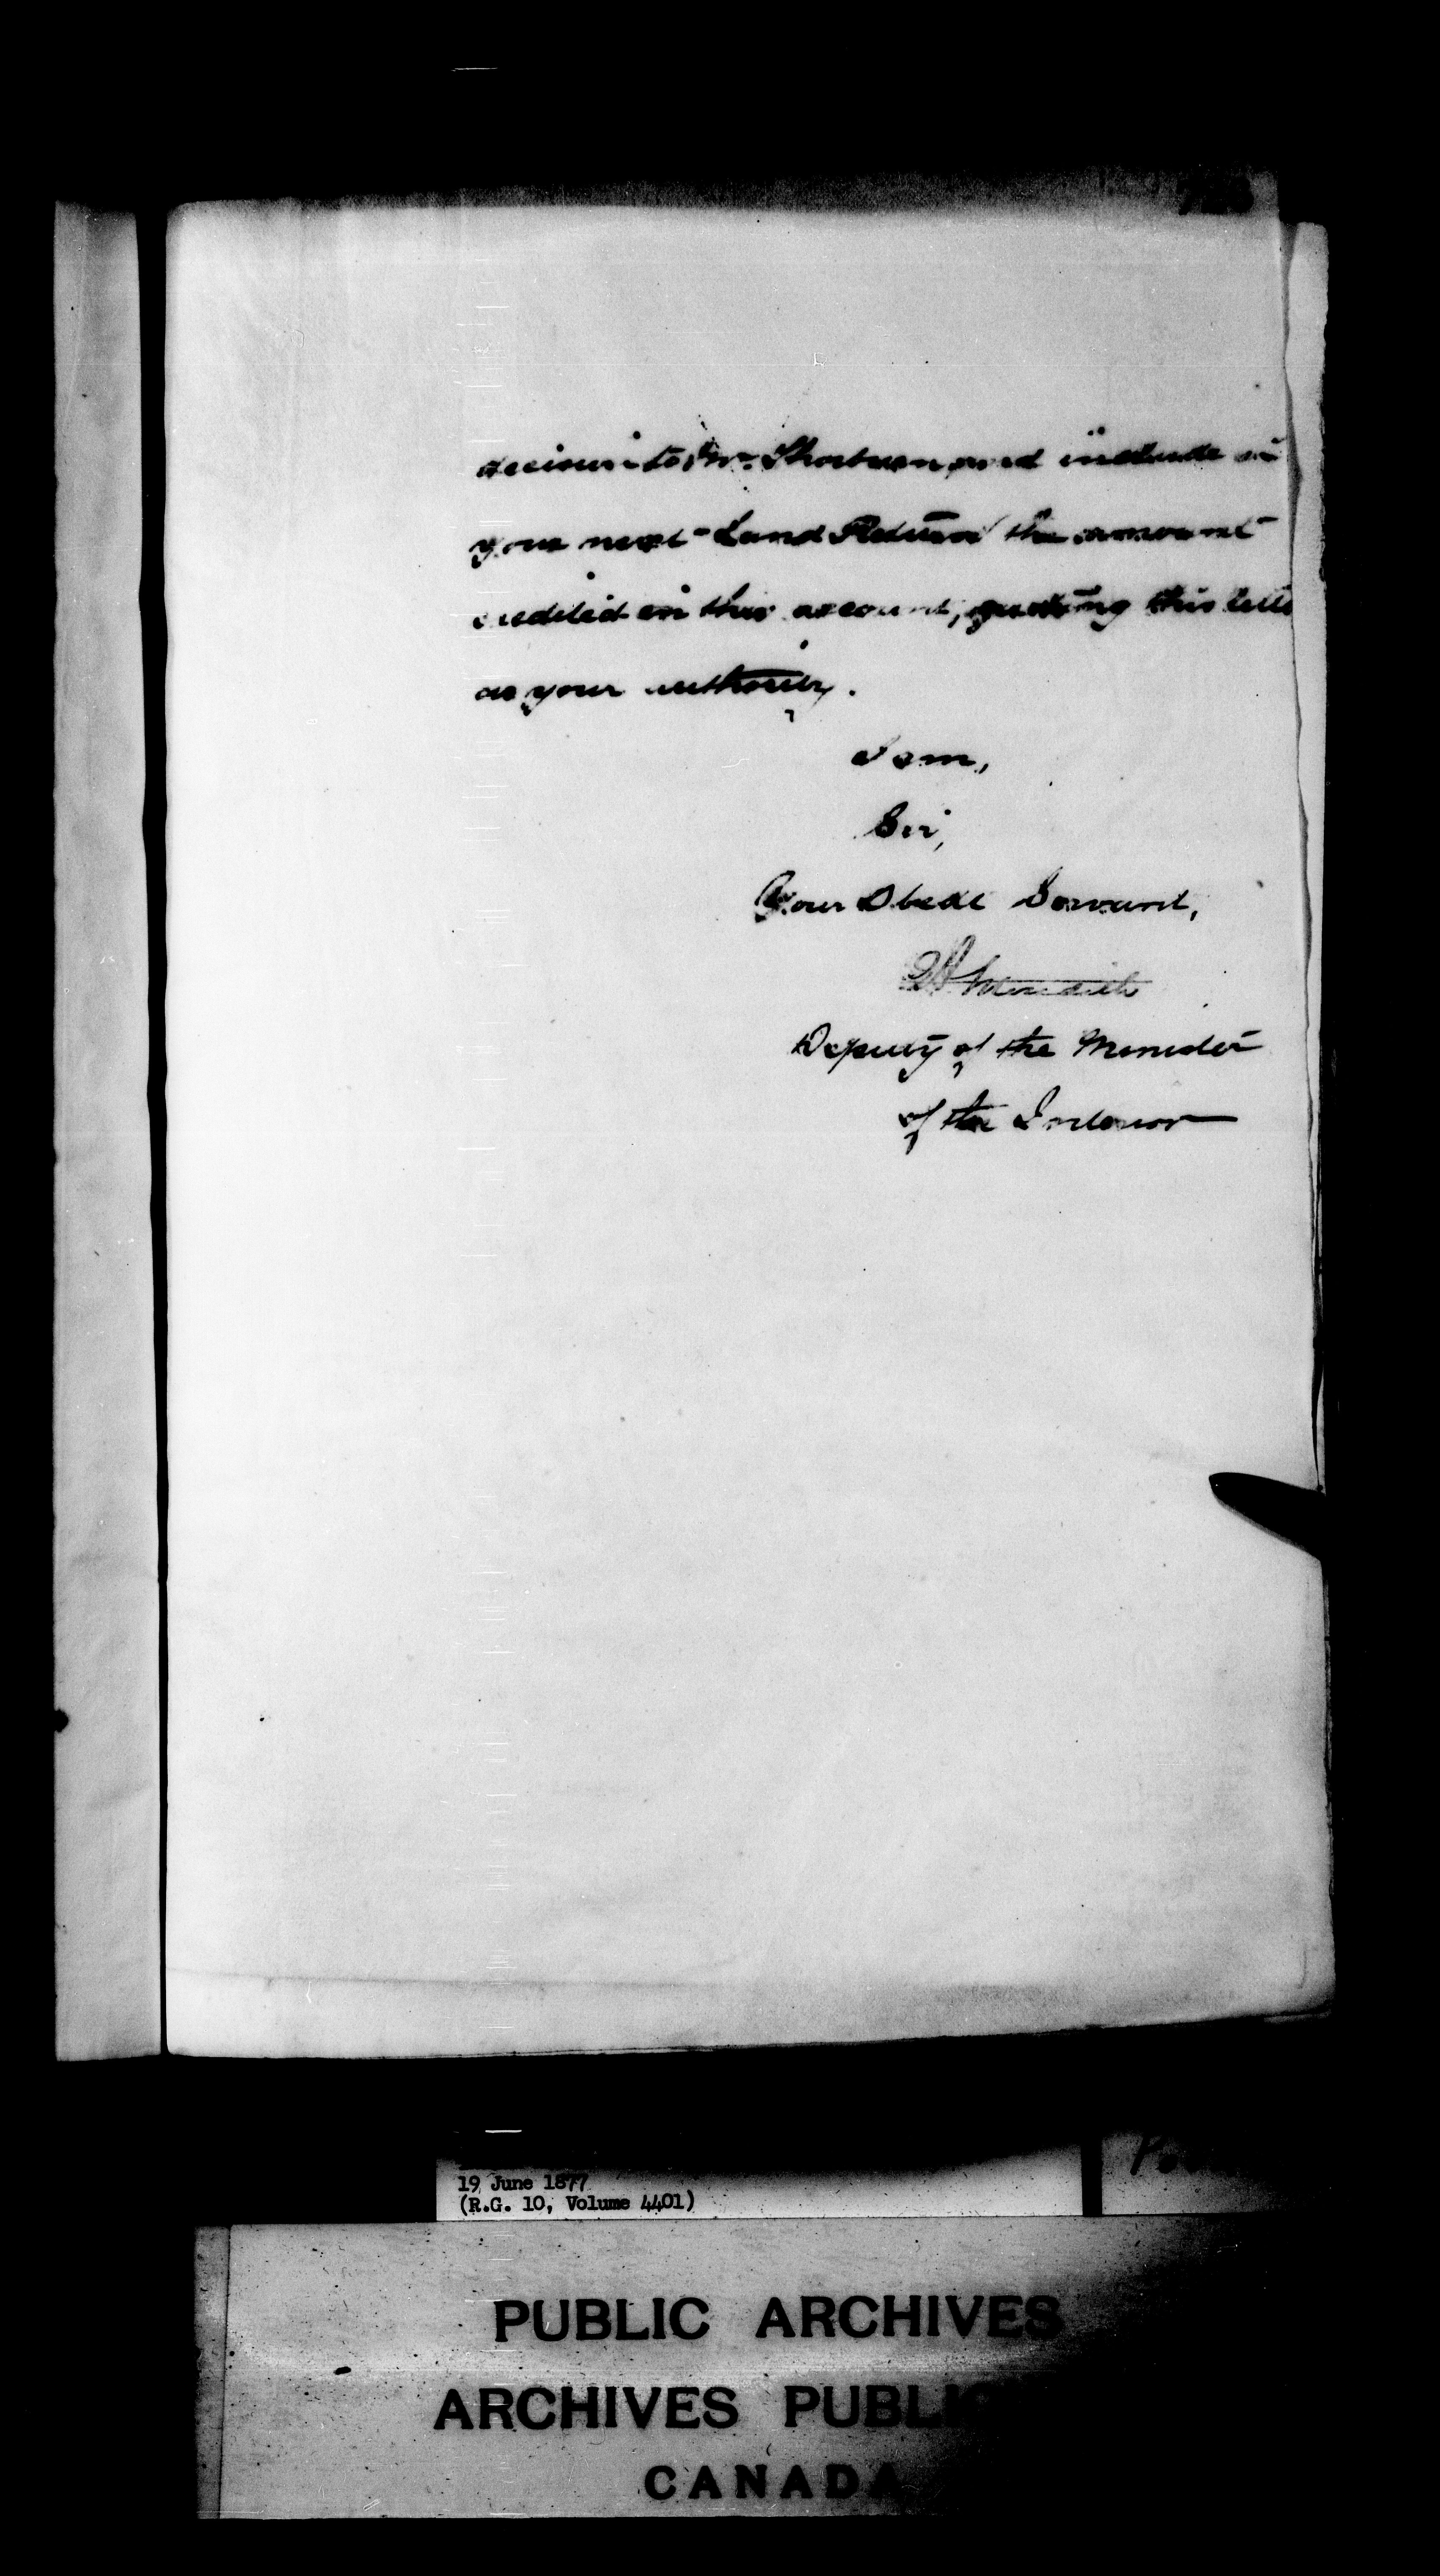 decision to Mr. and include in
your next Land Return the amount
credited on this account, quoting this lette
as your authority.
I am,
Sir,
Your Obedt Servant,
Meredith
Deputy of the Minister
of the Interior
19 June 1877
(R.G. 10, Volume 4401)
PUBLIC ARCHIVES
ARCHIVES PUBLI
CANADA